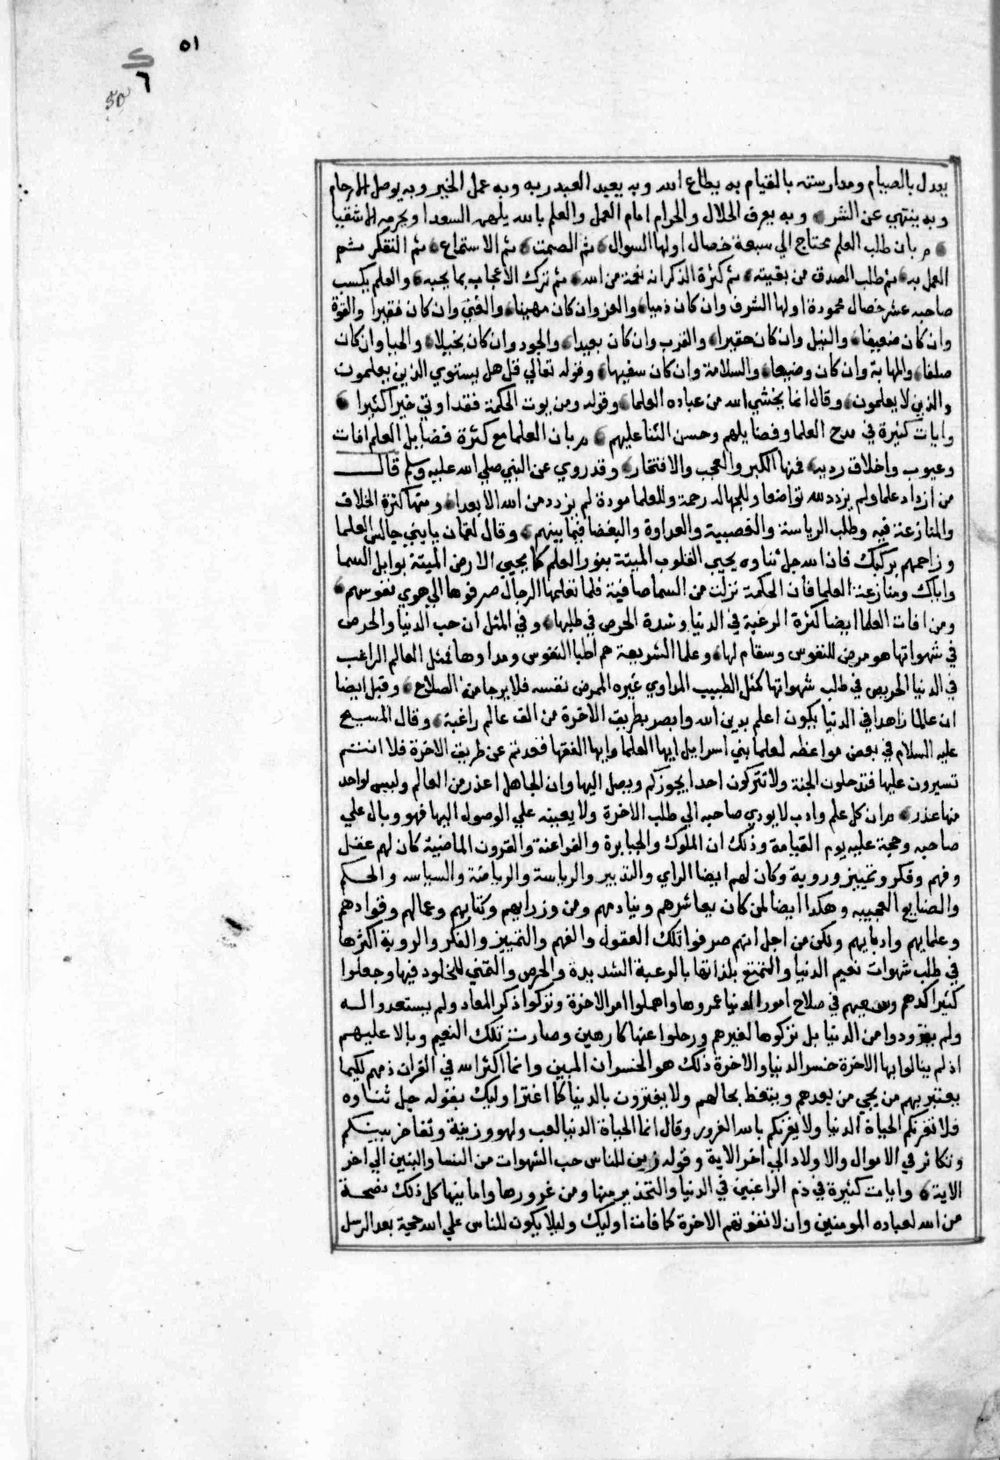 ٥١
٦
50
يعدل بالصيام ومدارسته بالقيام به يطاع الله وبه يعبد العبد ربه وبه عمل الخير وبه يوصل الارحام
وبه ينتهي عن الشر وبه يعرف الحلال والحرام امام العمل والعلم بالله يلهمه السعدا ويحرمه الاشقيا
بان طلب العلم محتاج الي سبعة خصال اولها السوال ثم الصمت ثم الاستماع ثم التفكر ثم
العمل به ثم طلب الصدق من بغيته ثم كثرة الذكر انه نعمة من الله ثم ترك الاعجاب بما يحبه والعلم يكسب
صاحبه عشر خصال محمودة اولها الشرف وان كان دميا والعز وان كان مهينا والغني وان كان فقيرا والقوة
وان كان ضعيفا والنبل وان كان حقيرا والقرب وان كان بعيدا والجود وان كان بخيلا والحيا وان كان
صلفا والمهابة وان كان وضيعا والسلامة وان كان سفيها وقوله تعالي قل هل يستوي الذين يعلمون
والذين لا يعلمون وقال انما يخشي الله من عباده العلما وقوله ومن يوت الحكمة فقد اوتي خيرا كثيرا
وايات كثيرة في مدح العلما وفضايلهم وحسن الثنا عليهم بان العلما مع كثرة فضايل العلم افات
وعيوب واخلاق ردية فمنها الكبر والعجب والافتخار وقد روي عن النبي صلي الله عليه وسلم قال
من ازداد علما ولم يزدد لله تواضعا وللجهاله رحمة وللعلما مودة لم يزدد من الله الا بعدا ومنها كثرة الخلاف
والمنازعة فيه وطلب الرياسة والعصبية والعداوة والبغضا فيما بينهم وقال لقمان يابني جالس العلما
وزاحمهم بركبتك فان الله جل ثناوه يحيي القلوب الميتة بنور العلم كما يحيي الارض الميتة بوابل السما
واياك ومنازعة العلما فان الحكمة نزلت من السما صافية فلما تعلمها الرجال صرفوها الي هوي نفوسهم
ومن افات العلما ايضا كثرة الرغبة في الدنيا وشدة الحرص في طلبها وفي المثل ان حب الدنيا والحرص
في شهواتها هو مرض للنفوس وسقام لها وعلما الشريعة هم اطبا النفوس ومداوها فمثل العالم الراغب
في الدنيا الحريص في طلب شهواتها كمثل الطبيب المداوي غيره الممرض نفسه فلا يرجا منه الصلاح وقيل ايضا
ان عالما زاهدا في الدنيا يكون اعلم بدين الله وابصر بطريق الاخرة من الف عالم راغبة وقال المسيح
عليه السلام في بعض مواعظه لعلما بني اسرايل ايها العلما وايها الفقها قعدتم عن طريق الاخرة فلا انتم
تسيرون عليها فتدخلون الجنة ولا تتركون احدا يجوزكم ويصل اليها وان الجاهل اعذر من العالم وليس لواحد
منها عذر ان كل علم وادب لا يودي صاحبه الي طلب الاخرة ولا يعينه علي الوصول اليها فهو وبال علي
صاحبه وحجة عليه يوم القيامة وذلك ان الملوك والجبابرة والفراعنة والقرون الماضية كان لهم عقل
وفهم وفكر وتمييز وروية وكان لهم ايضا الراي والتدبير والرياسة والرياضة والسياسه والحكم
والصنايع العجيبه وهكذا ايضا لمن كان يعاشرهم وينادمهم ومن وزرايهم وكتابهم وعمالهم وقوادهم
وعلمايهم وادبايهم ولكن من اجل انهم صرفوا تلك العقول والفهم والتمييز والفكر والروية اكثرها
في طلب شهوات نعيم الدنيا والتمتع بلذاتها بالرغبة الشديدة والحرص والتمني للخلود فيها وجعلوا
كثيرا كدهم وسعيهم في صلاح امور الدنيا عمروها واهملوا امر الاخرة وتركوا ذكر المعاد ولم يستعدوا له
ولم يتزودوا من الدنيا بل تركوها لغيرهم ورحلوا عنها كارهين وصارت تلك النعيم وبالا عليهم
اذ لم ينالوا بها الاخرة خسر الدنيا والاخرة ذلك هو الخسران المبين وانما اكثر الله في القران ذمهم لكيما
يعتبر بهم من يجي من بعدهم ويتعظ بحالهم ولا يغترون بالدنيا كما اغتر اوليك بقوله جل ثناوه
فلا تغرنكم الحياة الدنيا ولا يغرنكم بالله الغرور وقال انما الحياة الدنيا لعب ولهو وزينة وتفاخر بينكم
وتكاثر في الاموال والاولاد الي اخر الاية وقوله زين للناس حب الشهوات من النسا والبنين الي اخر
الاية وايات كثيرة في ذم الراغبين في الدنيا والتحذير منها ومن غرورها وامانيها كل ذلك نصيحة
من الله لعباده المومنين وان لا تفوتهم الاخرة كما فات اوليك وليلا يكون للناس علي الله حجة بعد الرسل